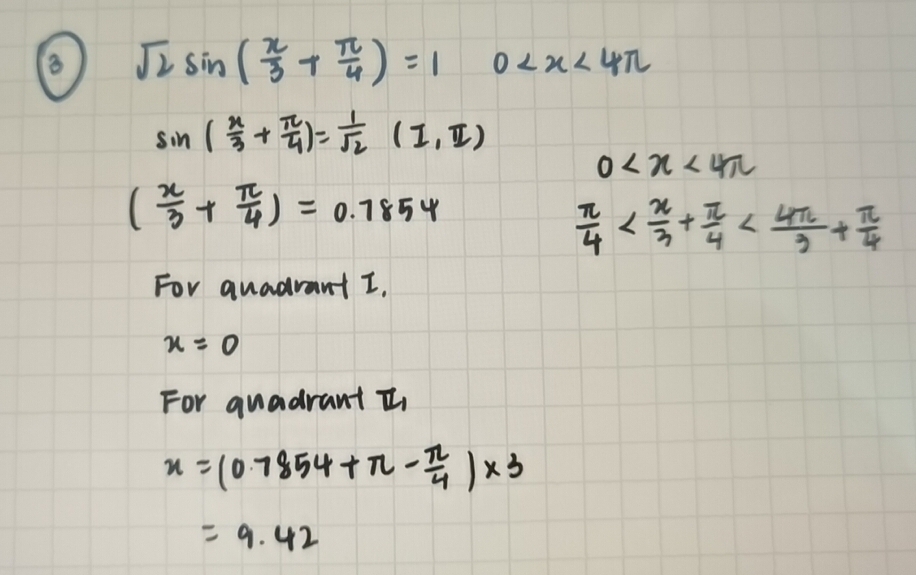 ③ √2 sin(x/3 + π/4) = 1 0 < x < 4π
sin(x/3 + π/4) = 1/√2 (I, II)
0 < x < 4π
(x/3 + π/4) = 0.7854
π/4 < x/3 + π/4 < 4π/3 + π/4
For quadrant I,
x = 0
For quadrant II,
x = (0.7854 + π - π/4) × 3
= 9.42